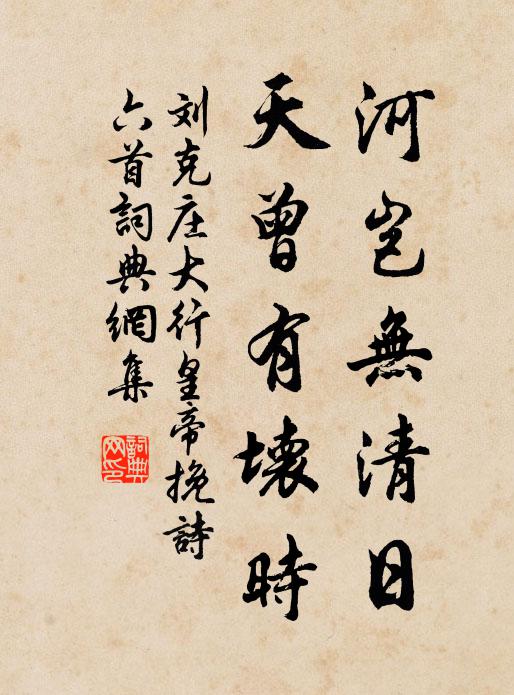 河豈無清日
天曾有壞時
刘克庄大行皇帝挽詩
六首詞典網集
詞典网印